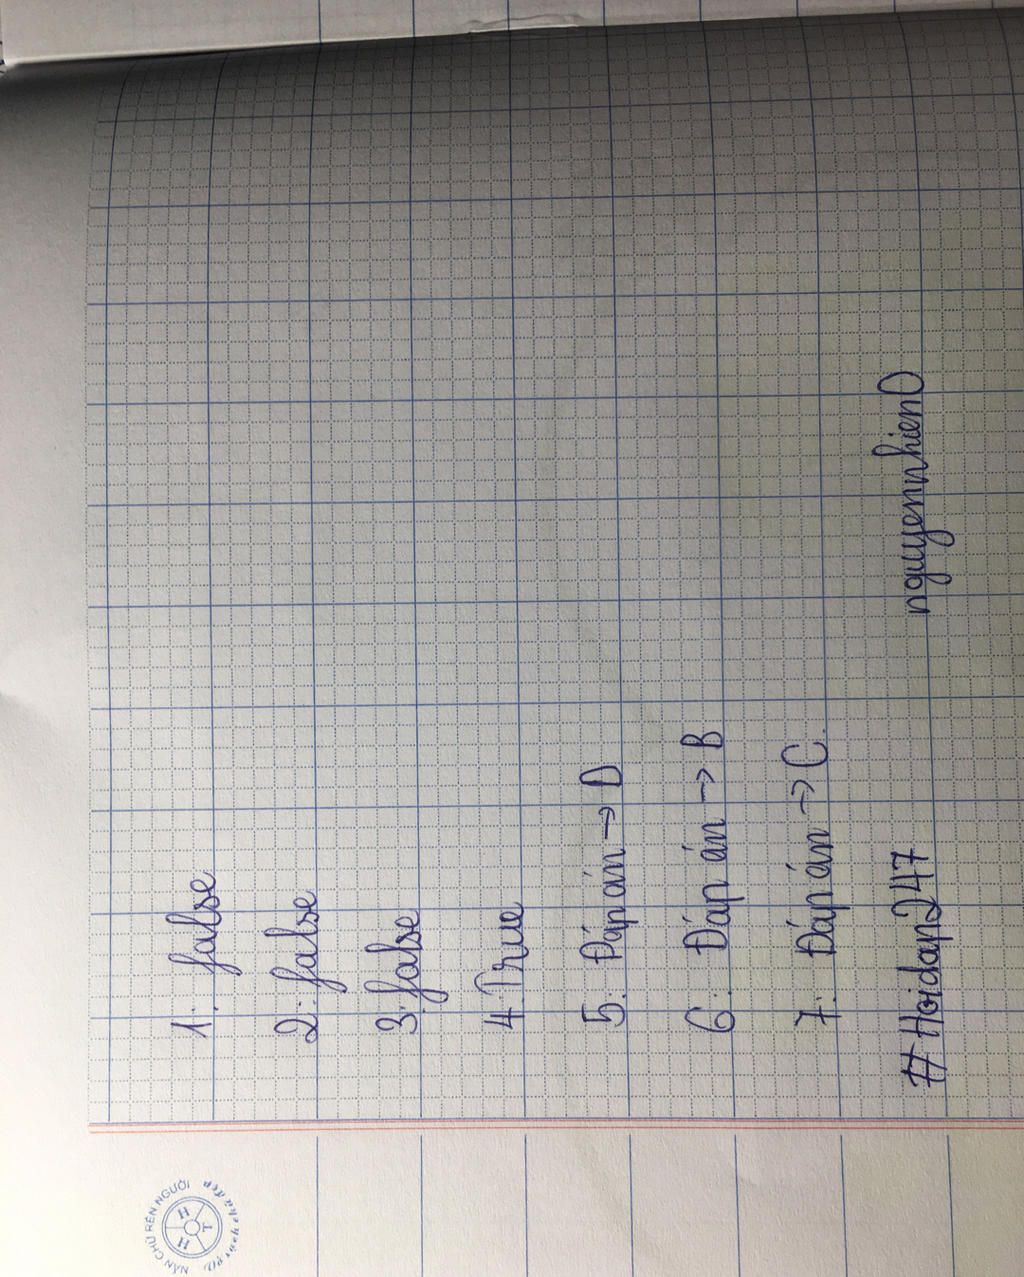 1: false
2: false
3: false
4. True
5: Đáp án → D
6: Đáp án → B
7: Đáp án → C.
#Hoidap247 nguyennhien0
NẮN CHỮ RÈN NGƯỜI
H H T